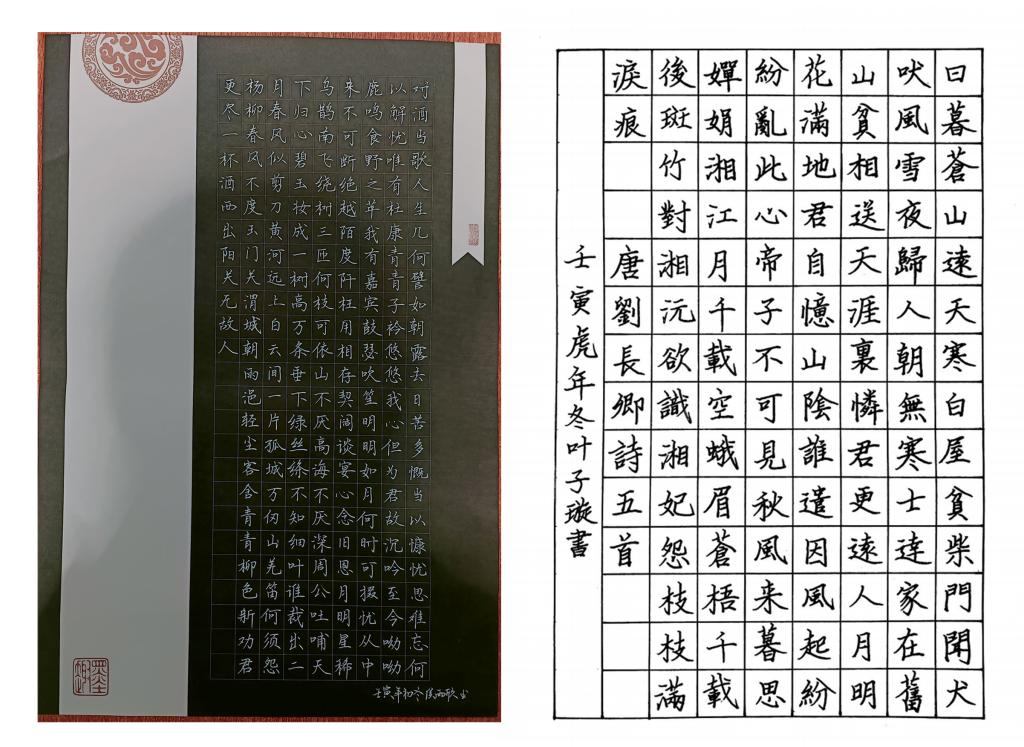 对酒当歌人生几何譬如朝露去日苦多慨当以慷忧思难忘何
以解忧唯有杜康青青子衿悠悠我心但为君故沉吟至今呦呦
鹿鸣食野之苹我有嘉宾鼓瑟吹笙明明如月何时可掇忧从中
来不可断绝越陌度阡枉用相存契阔谈宴心念旧恩月明星稀
乌鹊南飞绕树三匝何枝可依山不厌高海不厌深周公吐哺天
下归心碧玉妆成一树高万条垂下绿丝绦不知细叶谁裁出二
月春风似剪刀黄河远上白云间一片孤城万仞山羌笛何须怨
杨柳春风不度玉门关渭城朝雨浥轻尘客舍青青柳色新劝君
更尽一杯酒西出阳关无故人
壬寅年初冬
日暮蒼山遠天寒白屋貧柴門聞犬
吠風雪夜歸人朝無寒士達家在舊
山貧相送天涯裏憐君更遠人月明
花滿地君自憶山陰誰遣因風起紛
紛亂此心帝子不可見秋風来暮思
嬋娟湘江月千載空蛾眉蒼梧千載
後斑竹對湘沅欲識湘妃怨枝枝滿
淚痕 唐劉長卿詩五首
壬寅虎年冬叶子璇書